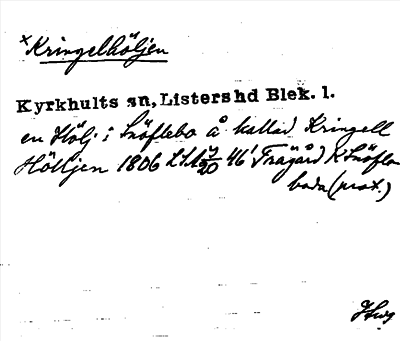 x Kringelhöljen
Kyrkhults sn, Listers hd Blek. l.
en Hölj i Snöflebo å kallad Kringell
Hölljen 1806 LSA 7/20 46' Frägård K Snöfle
boda (prot.)